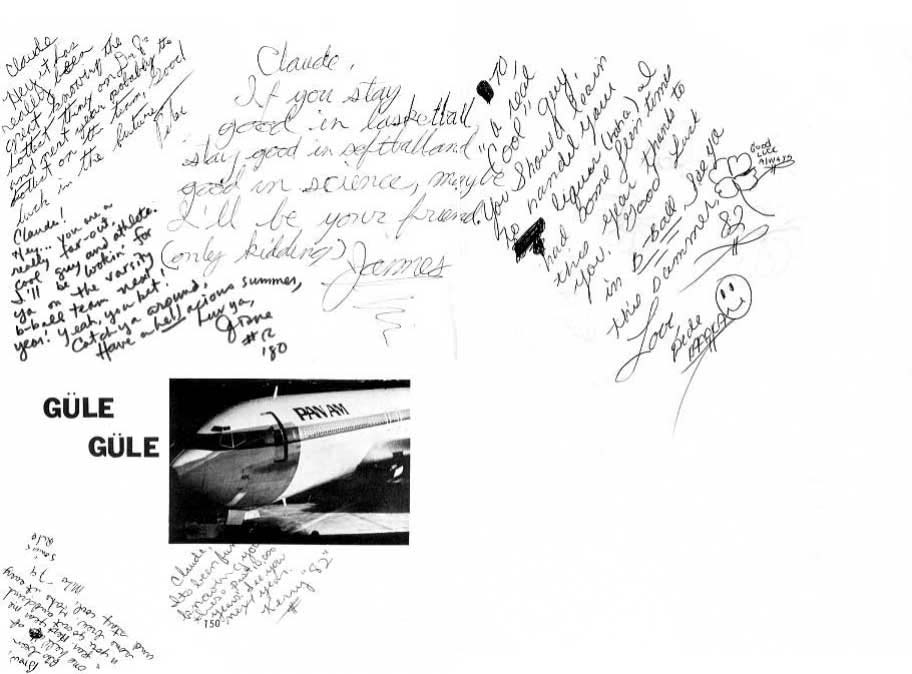 Claude
Hey, it has
really been
great knowing the
hottest thing on Dr. J's
and next year probably the
hottest on the team, Good
luck in the future
Claude,
If you stay
good in basketball
stay good in softball and
good in science, maybe
I'll be your friend.
(only kidding)
James
TO,
"a real
"Cool" guy.
You Should learn
to handel your
liquor (haha) I
had some fun times
this year thanks to
you. Good luck
in b-ball See ya
this summer.
Love
82
GOOD
LUCK
ALWAYS
Claude!
Hey... you are a
really far-out,
cool guy and athlete.
I'll be lookin' for
ya on the varsity
b-ball team next
year! Yeah, you bet!
Catch ya around,
Have a hellacious summer,
Luv ya,
#12
'80
GÜLE
GÜLE
PAN AM
Claude,
Its been fun
knowing you
this past
year. See you
next year.
Kerry "82"
150